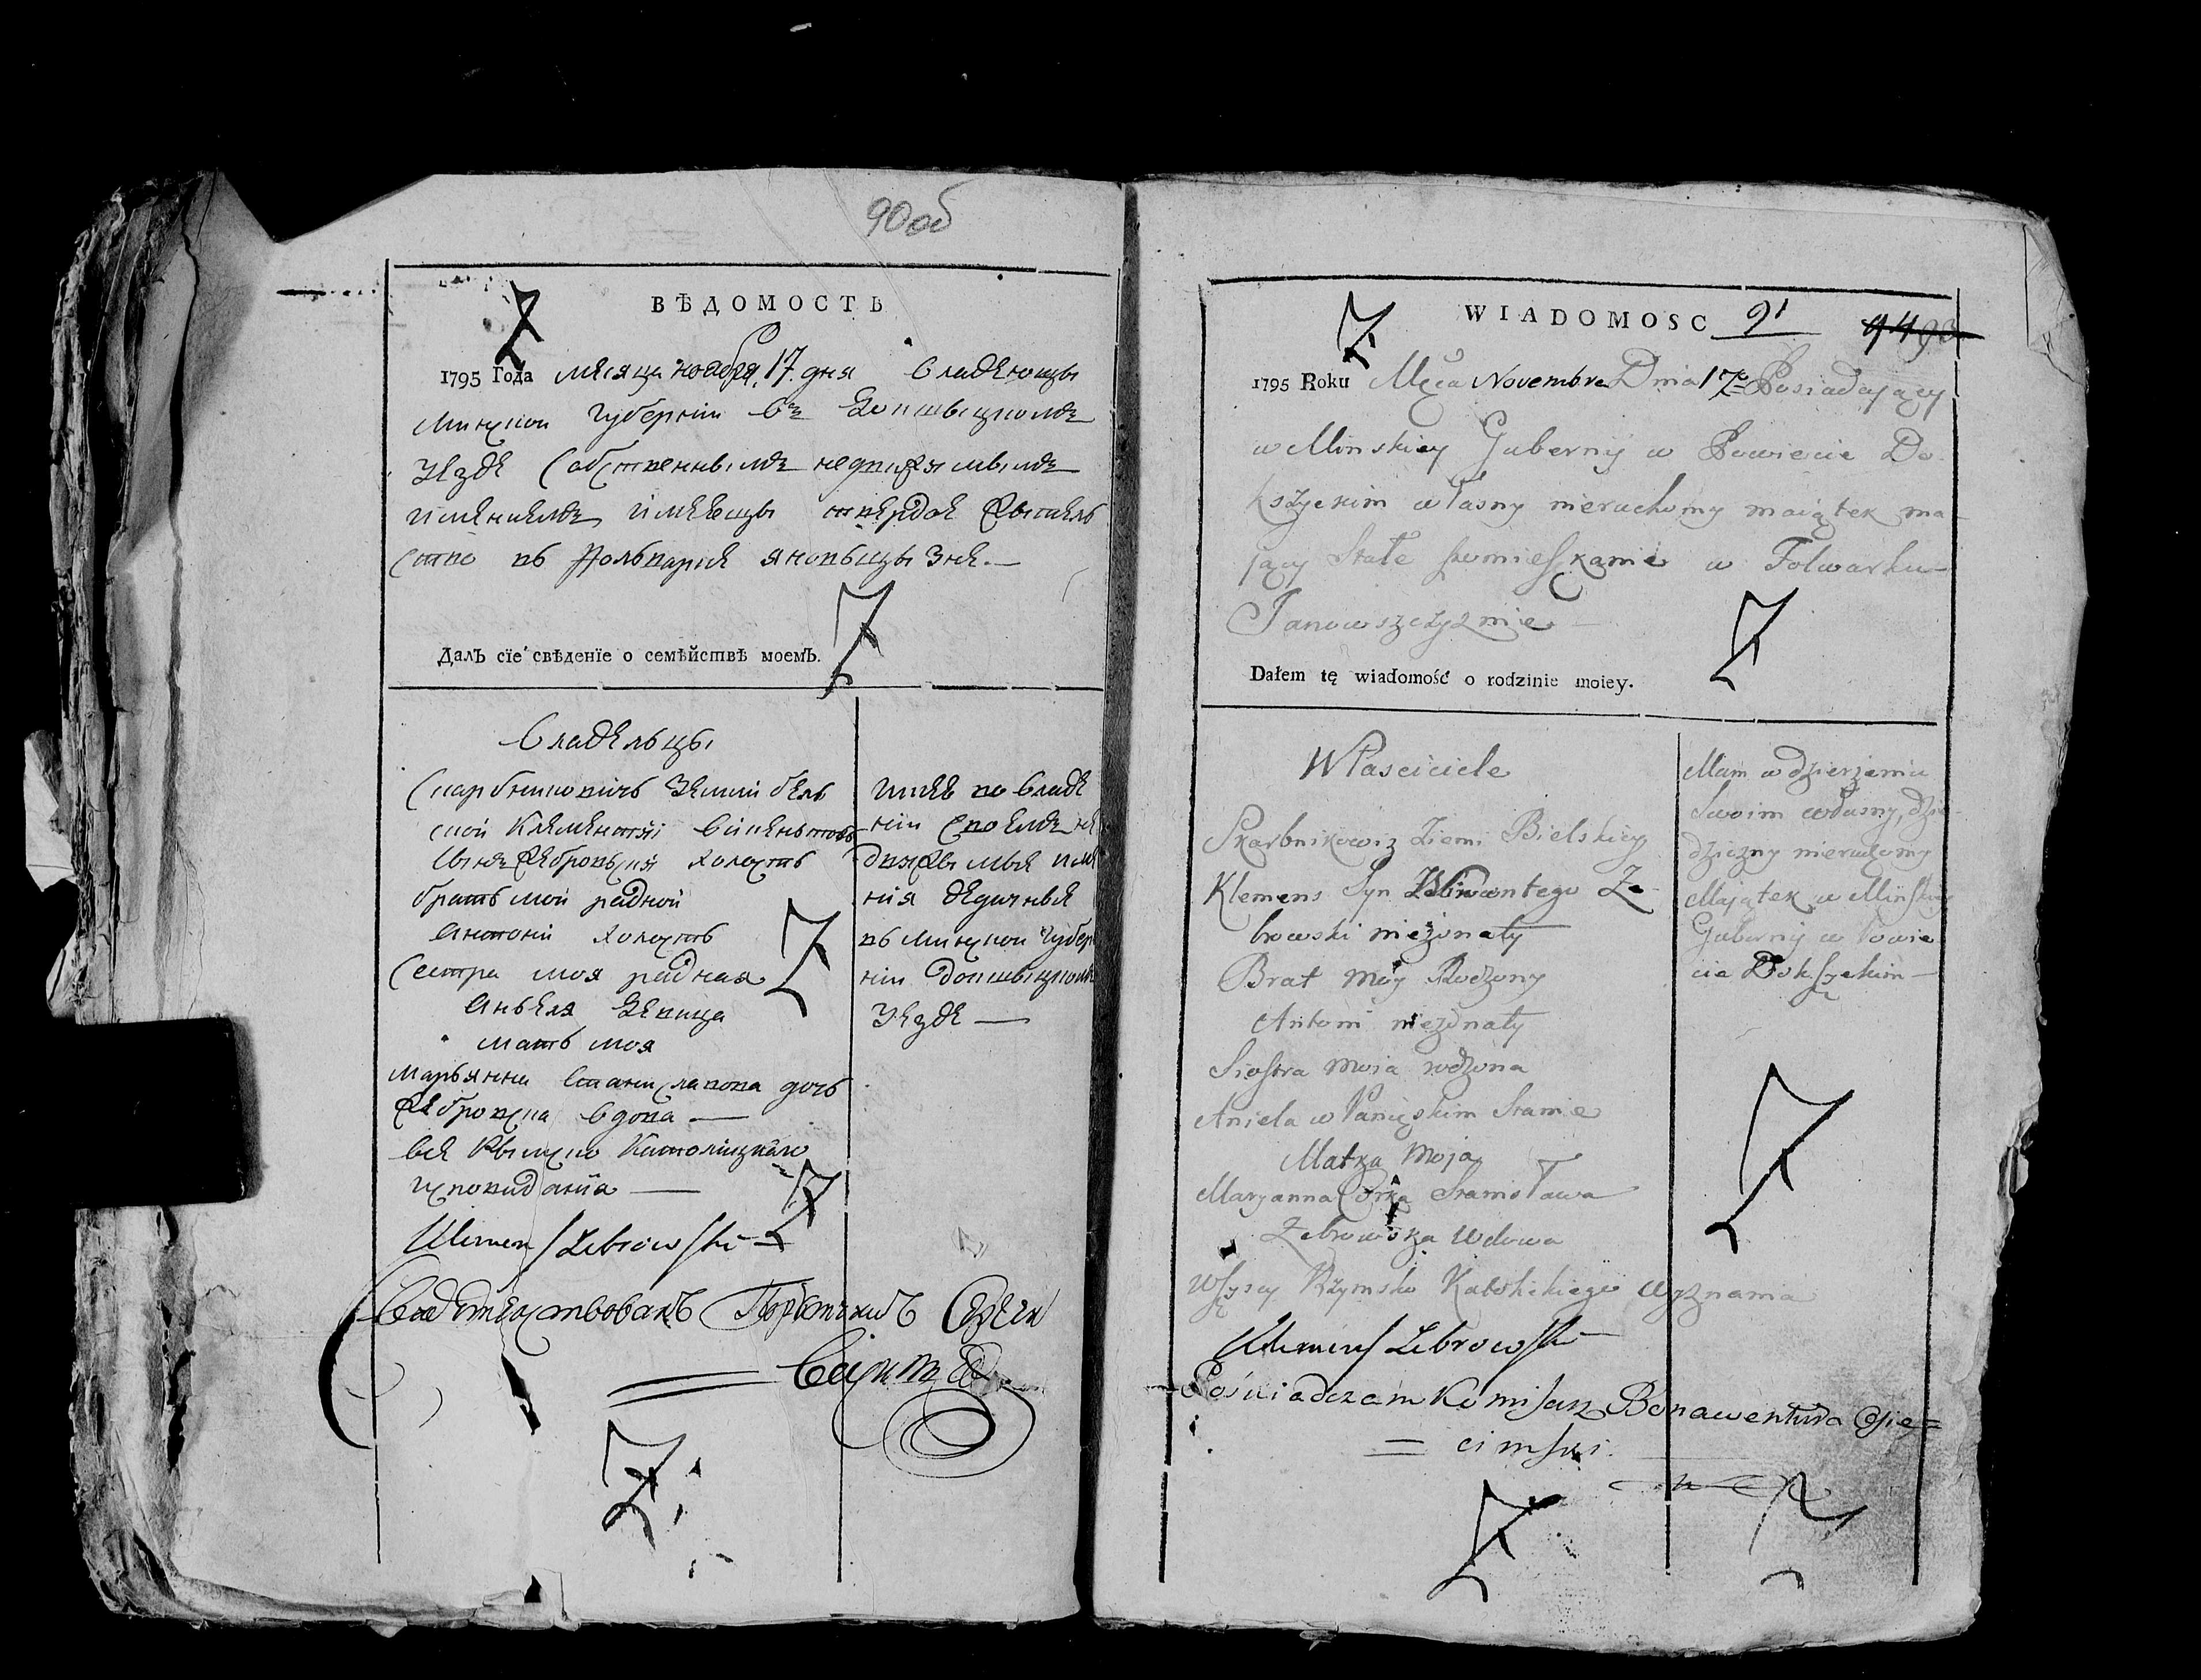 90об
ВѢДОМОСТЬ
1795 Года месяца ноября 17. дня владеющы
Минской Губернии въ Докшыцкомъ
уезде собственнымъ недвижымымъ
имениемъ имеющы твердое жытель
ство въ Фольварке Яновщызне.—
ДалЪ сїе свѣденїе о семѣйствѣ моемЪ.
Владельцы
Скарбниковичь Земли бель
ской Клементий Викентов
сынъ Жебровский холость
братъ мой радной
Антоний холость
сестра моя радная
Анеля Девица
мать моя
Марьянна Станиславова дочь
Жебровска вдова —
все Рымско Католицкаго
исповидания —
имее во владе
нии своемъ не
движымые име
ния дедичные
въ Минской Губер
нии Докшыцком
уезде —
Klemens Zebrowski
Свидетельствовалъ
WIADOMOSC 91
1795 Roku Męca Novembra Dnia 17º Posiadający
w Minskiey Gubernij w Powiecie Do
kszyckim własny nieruchomy maiątek ma
jący Stałe pomieszkanie w Folwarku
Janowszczyznie —
Dałem tę wiadomość o rodzinie moiey.
Właściciele
Skarbnikowicz Ziemi Bielskiey
Klemens Syn Wincentego Że-
browski nieżonaty
Brat móy Rodzony
Antoni nieżonaty
Siostra moia rodzona
Aniela w Panięskim Stanie
Matka Moja
Maryanna Corka Stanisława
Żebrowska Wdowa
Wszyscy Rzymsko Katholickiego Wyznania
Mam w dzierżeniu
Swoim własny, dzie
dziczny nieruchomy
Majątek w Minskiey
Gubernij w Powie
cie Dokszyckim —
Klemens Zebrowski
Poświadczam Komisarz Bonawentura Osie=
= cimski.